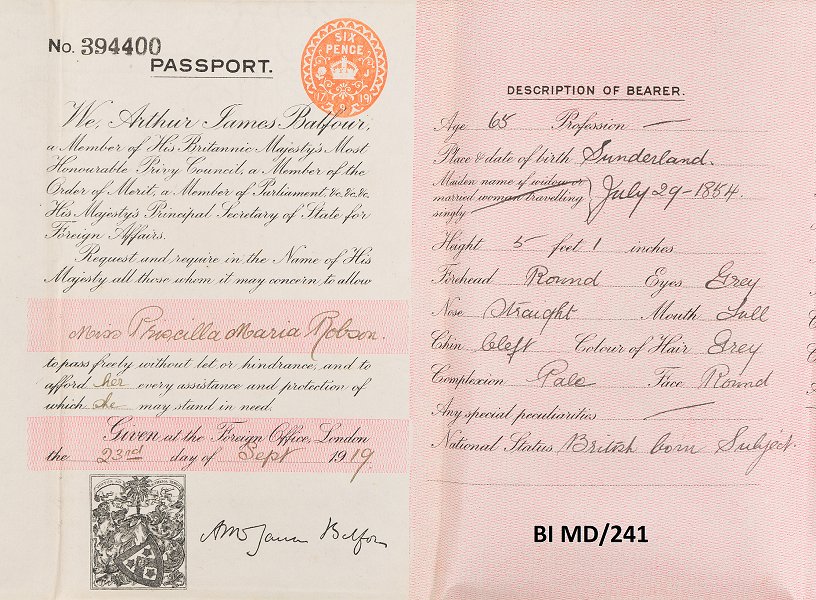 No. 394400
PASSPORT.
SIX
PENCE
9
19
We, Arthur James Balfour,
a Member of His Britannic Majesty's Most
Honourable Privy Council, a Member of the
Order of Merit, a Member of Parliament, &c. &c. &c.
His Majesty's Principal Secretary of State for
Foreign Affairs.
Request and require in the Name of His
Majesty all those whom it may concern to allow
Miss Priscilla Maria Robson
to pass freely without let or hindrance, and to
afford her every assistance and protection of
which she may stand in need.
Given at the Foreign Office, London
the 23rd day of Sept 1919.
Balfour
DESCRIPTION OF BEARER.
Age 65 Profession —
Place & date of birth Sunderland.
Maiden name if widow or
married woman travelling } July 29 - 1854
singly
Height 5 feet 1 inches
Forehead Round Eyes Grey
Nose Straight Mouth Full
Chin Cleft Colour of Hair Grey
Complexion Pale Face Round
Any special peculiarities —
National Status British born Subject.
BI MD/241